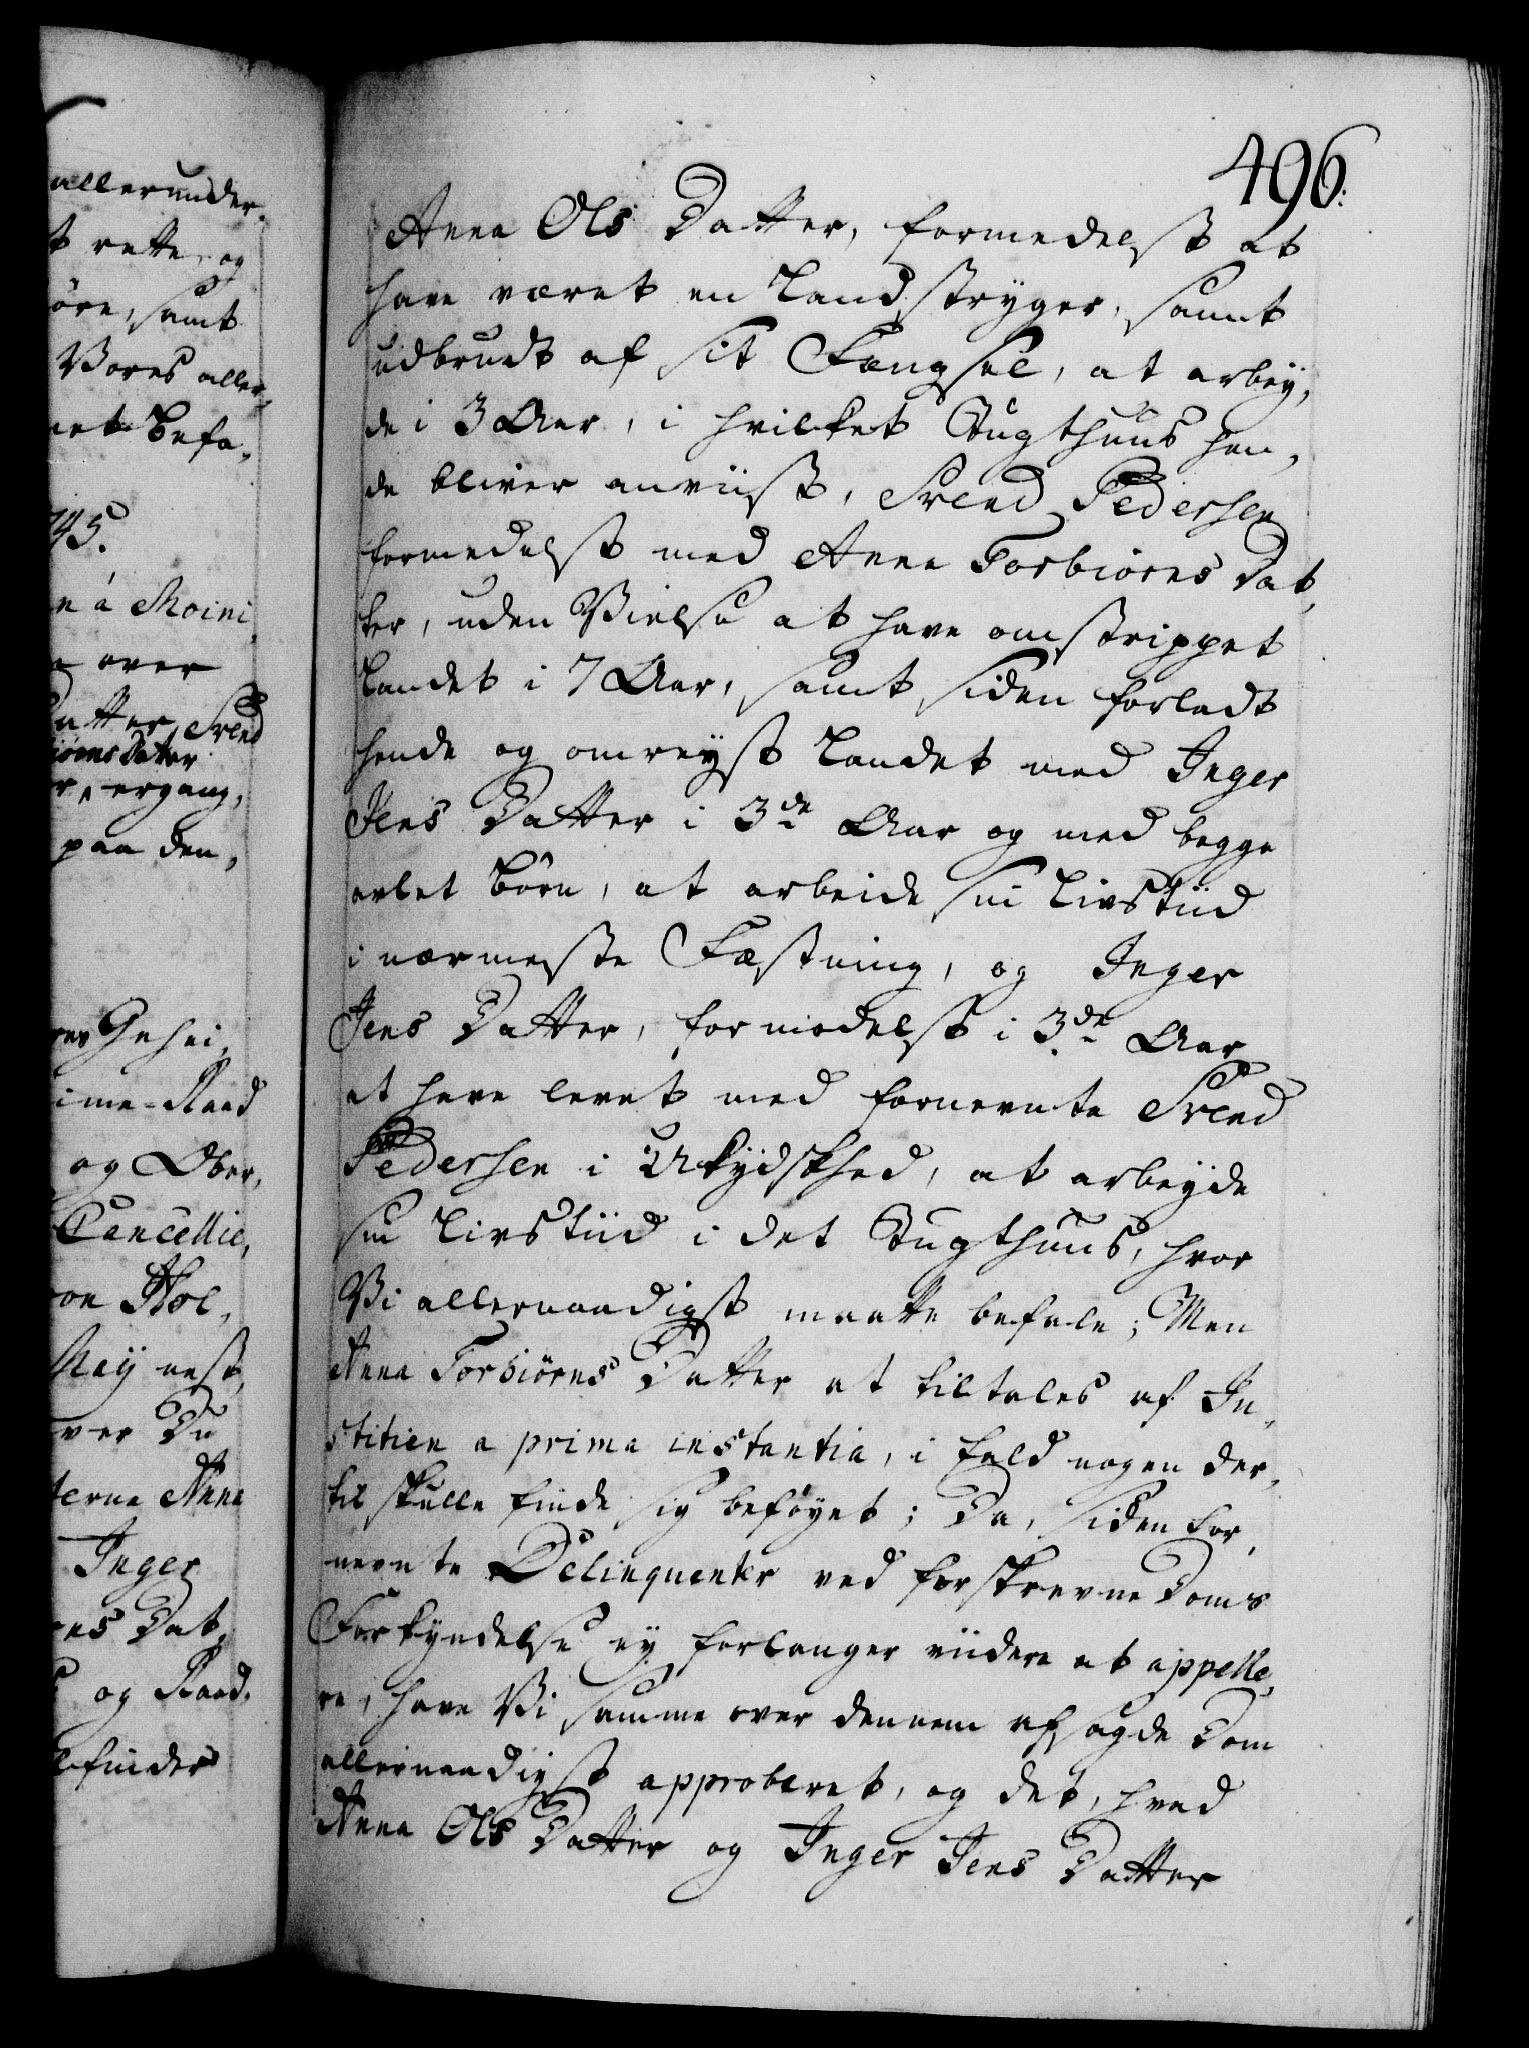 allerunder,
t rette, og
øre, samt
Vores aller,
net Befa,
745.
n á Moini,
n over
Datter, Svend
iørns Datter
r, ergang,
paa den,
res Gehei,
ime-Raad
og Ober,
Cancellie,
on Hol,
Maij nest,
ver Du
terne Anna
Inger
nes Dat,
og Raad,
lfinder
496.
Anna Ols Datter, formedelst at
have været en Landstryger, samt
udbrudt af sit Fængsel, at arbey,
de i 3 Aar, i hvilket Tugthuus hen,
de bliver anviist, Svend Pedersen
formedelst med Anna Torbiørns Dat,
ter, uden Vielse at have omstrippet
Landet i 7 Aar, samt siden forladt
hende og omreyst Landet med Inger
Jens Datter i 3de Aar og med begge
avlet Børn, at arbeide sin Livstiid
i nærmeste Fæstning, og Inger
Jens Datter, formedelst i 3de Aar
at have levet med fornevnte Svend
Pedersen i Ukydskhed, at arbeyde
sin Livstiid i det Tugthuus, hvor
Vi allernaadigst maatte befale; Men
Anna Torbiørns Datter at tiltales af Ju,
stitien a prima instantia, i fald nogen der,
til skulle finde sig beføyet; Da, siden for,
nevnte Delinquenter ved forskrevne Doms
Forkyndelse ey forlanger viidere at appelle,
re, have Vi samme over dennem afsagde Dom
allernaadigst approberet, og det, hvad
Anna Ols Datter og Inger Jens Datter